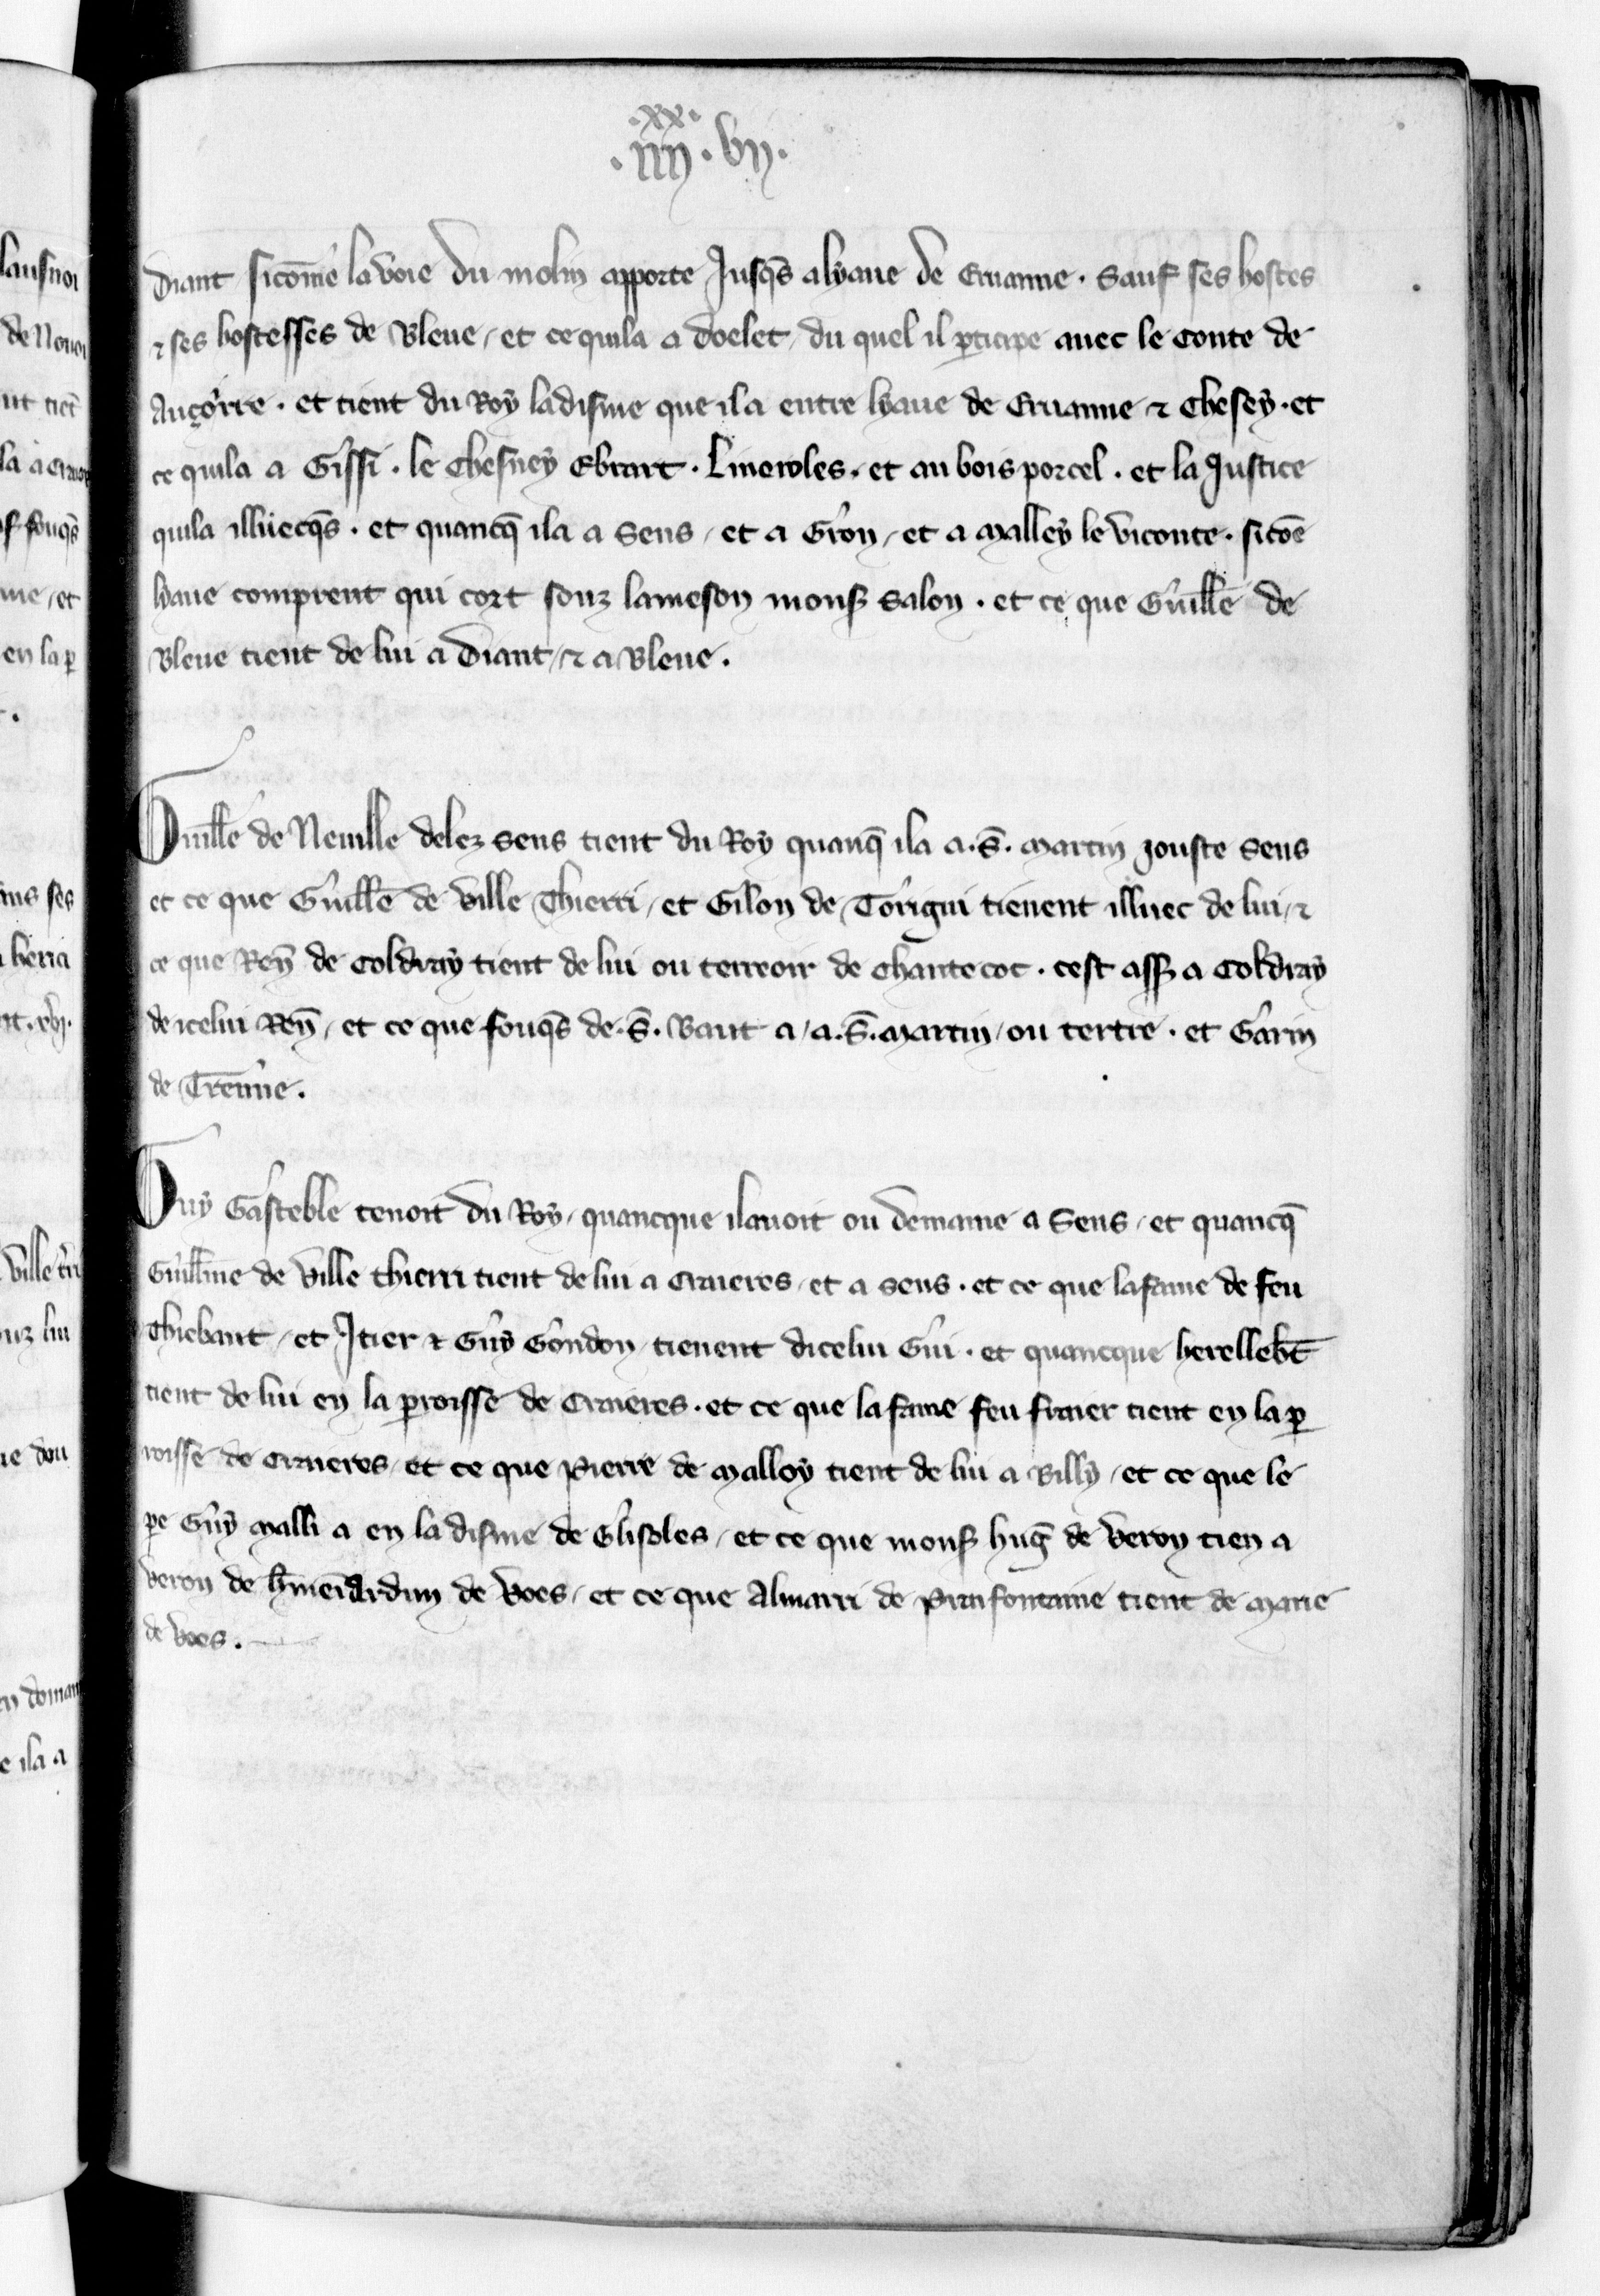 .xx.
.iiij.vij.
diant sicōme la voie du molin apporte Jusqs̄ a lyaue de Eruanne. Sauf ses hostes
⁊ ses hostesses de Bleue / et ce quila a doelet / du quel il ꝑticipe auec le Conte de
Auçorre. et tient du Roy la disme que il a entre lyaue de Eruanne ⁊ Chesey. et
ce quila a Gissi. le Chesney Ebrart. Lineroles. et au bois porcel. et la Justice
quila illuecqs̄. et quancq̄ il a a Sens / et a Gron / et a Malley le viconte. sicōe
lyaue comprent qui cort souz la meson monsʳ Salon. et ce que Guill̄e de
Bleue tient de lui a Diant / ⁊ a Bleue.
Guill̄e de Neuille delez Sens tient du Roy quanq̄ il a a .S̄. Martin jouste Sens
et ce que Guill̄e de Ville Thierri / et Gilon de Torigni tienent illuec de lui / ⁊
ce que Reñ de Coldray tient de lui ou terreoir de Chantecoc. cest assʳ a Coldray
de icelui Reñ / et ce que fouqs̄ de .S̄. Baut a / a .S̄. Martin / ou tertre. et Garin
de Trēnne.
Guy Gasteble tenoit du Roy / quancque il auoit ou demaine a Sens / et quancq̄
Guill̄me de Ville thierri tient de lui a Erueres / et a Sens. et ce que la fame de feu
Thiebaut / et Itier ⁊ Guy Gondon / tienent dicelui Gui. et quancque herelleb̄t
tient de lui en la ꝑroisse de Crueres. et ce que la fame feu fraier tient en la ꝑ
roisse de Crueres / et ce que Pierre de Malloy tient de lui a Billy / et ce que le
pe Guy Malli a en la disme de Glisoles / et ce que monsʳ huḡ de Veron tien a
Veron de h̄menardun de Voes / et ce que Almarri de Prinfontaine tient de Marie
de Voes.